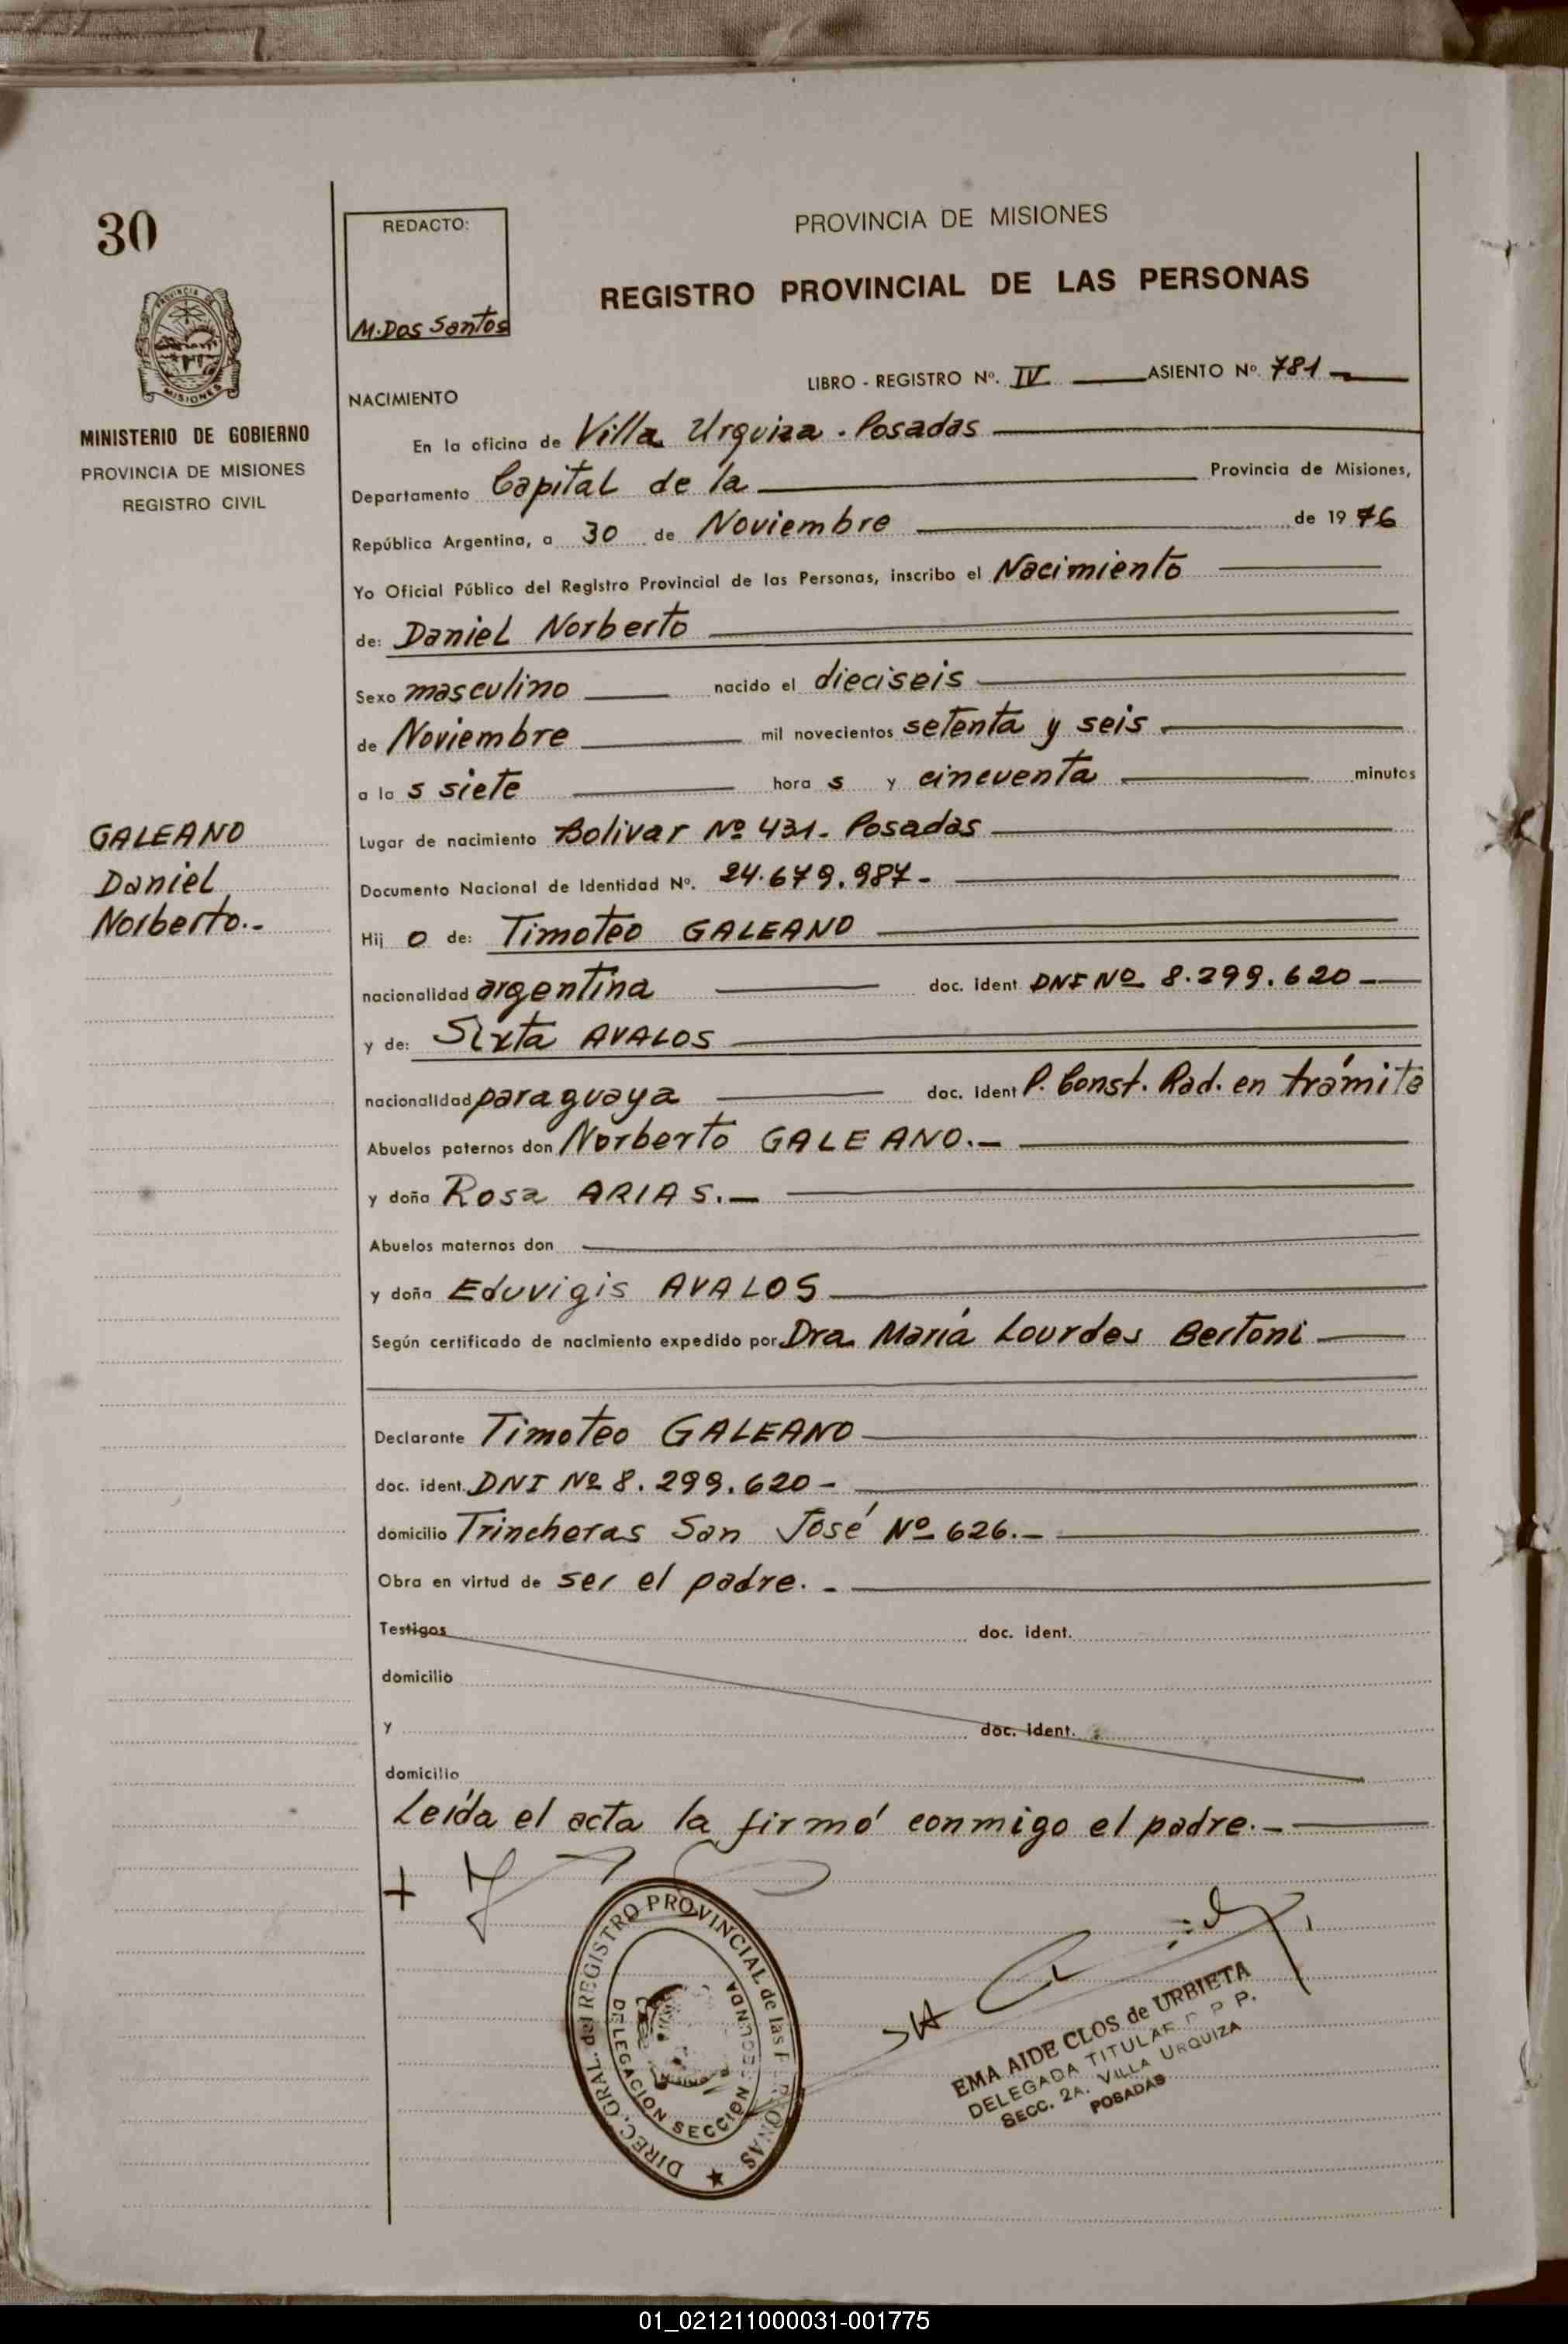 30
PROVINCIA DE
MISIONES
MINISTERIO DE GOBIERNO
PROVINCIA DE MISIONES
REGISTRO CIVIL
REDACTO:
M. Dos Santos
PROVINCIA DE MISIONES
REGISTRO PROVINCIAL DE LAS PERSONAS
LIBRO - REGISTRO Nº. IV ASIENTO Nº 781
NACIMIENTO
En la oficina de Villa Urquiza - Posadas
Departamento Capital de la Provincia de Misiones,
República Argentina, a 30 de Noviembre de 1976
Yo Oficial Público del Registro Provincial de las Personas, inscribo el Nacimiento
de: Daniel Norberto
Sexo masculino nacido el dieciseis
de Noviembre mil novecientos setenta y seis
a la s siete hora s y cincuenta minutos
GALEANO
Daniel
Norberto.-
Lugar de nacimiento Bolivar Nº 431- Posadas
Documento Nacional de Identidad Nº. 24.679.987-
Hij o de: Timoteo GALEANO
nacionalidad argentina doc. ident DNI Nº 8.299.620-
y de: Sixta AVALOS
nacionalidad paraguaya doc. ident P. Const. Rad. en trámite
Abuelos paternos don Norberto GALEANO.-
y doña Rosa ARIAS.-
Abuelos maternos don
y doña Eduvigis AVALOS
Según certificado de nacimiento expedido por Dra. María Lourdes Bertoni
Declarante Timoteo GALEANO
doc. ident. DNI Nº 8.299.620-
domicilio Trincheras San José Nº 626.-
Obra en virtud de ser el padre.-
Testigos doc. ident.
domicilio
y doc. ident.
domicilio
Leída el acta la firmó conmigo el padre.-
DIREC. GRAL. del REGISTRO PROVINCIAL de las PERSONAS
DELEGACION SECCION SEGUNDA
EMA AIDE CLOS de URBIETA
DELEGADA TITULAR R P P.
SECC. 2A. VILLA URQUIZA
POSADAS
01_021211000031-001775